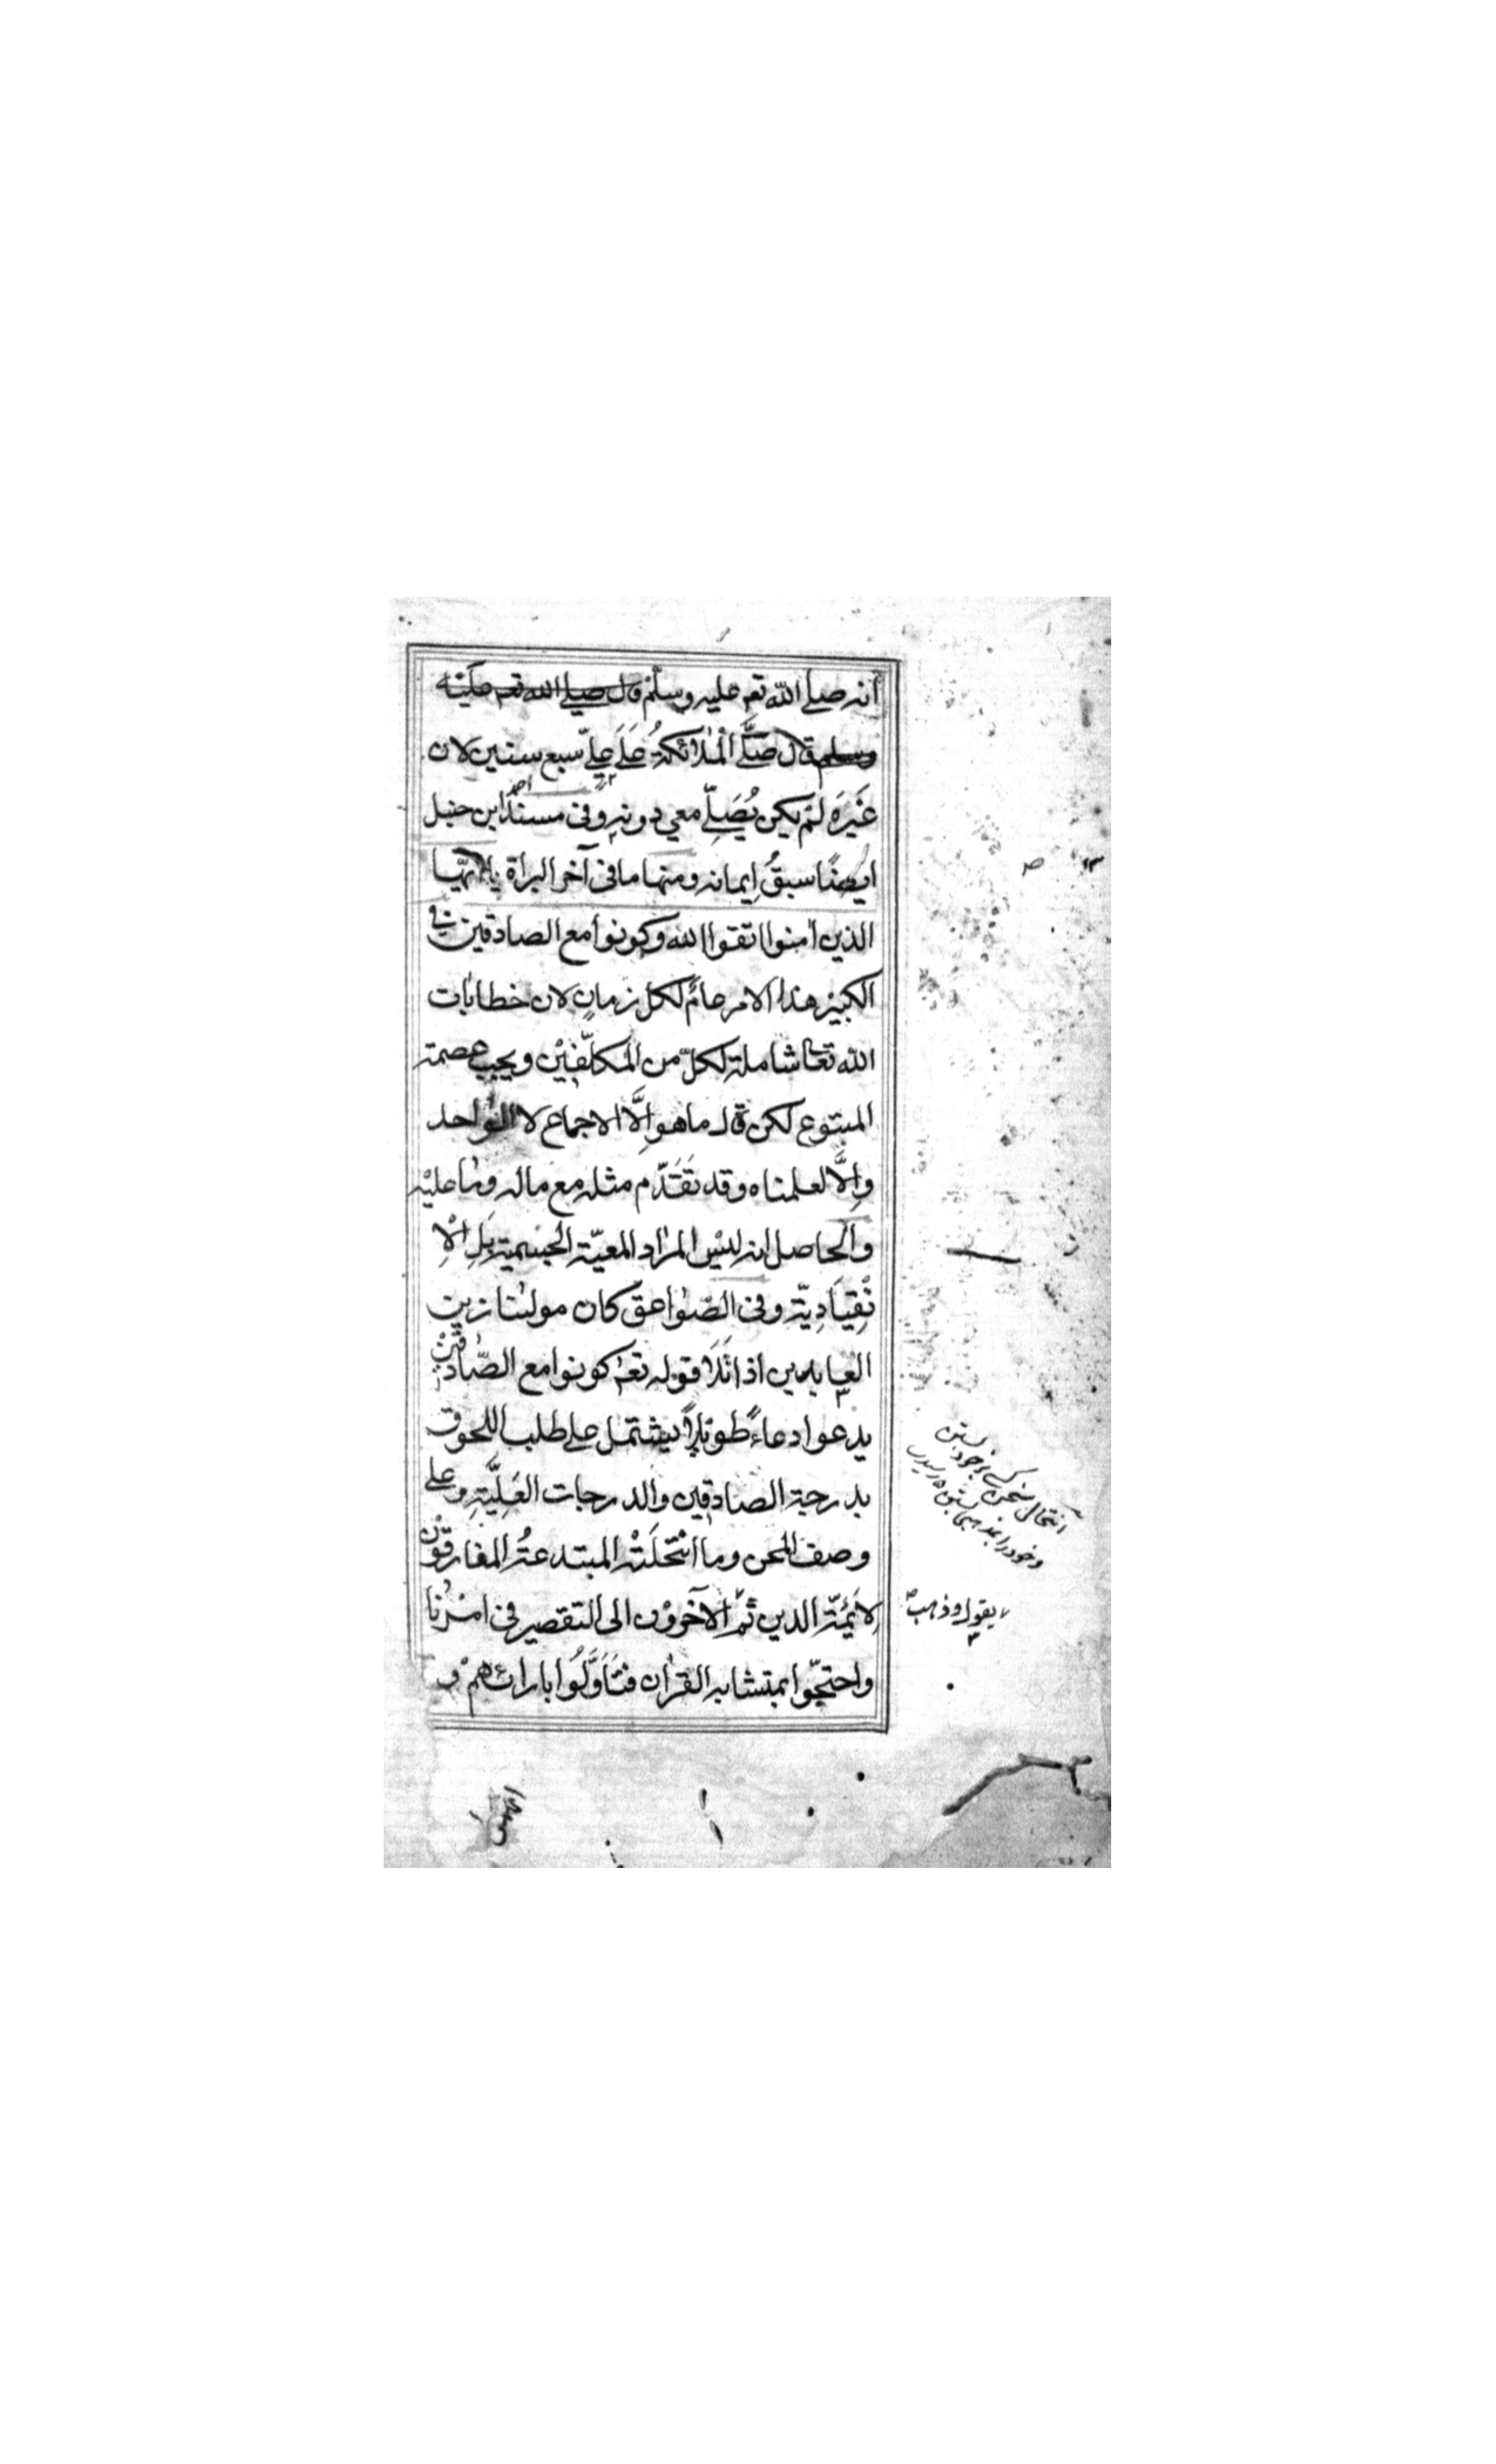 أنه صلے الله تعم عليه وسلم قال صلے الله تعم عليه
وسلم قال صَلَّے الْمَلٰائكةُ عَلَے عليّ سبع سنين لان
غَيْرَه لمْ يكن يُصَلِّے معي دونه وفى مسند احمد ابن حنبل
ايضًا سبقُ اِيمانه ومنها ما فى آخر البراة يا ايّها
الذين آمنوا اتقوا الله وكونوا مع الصادقين فى
الكبير هذا الامر عامٌ لكل زمانٍ لان خطابات
الله تعا شاملة لكلّ من المكلّفين ويجب عصمة
المتبوع لكن قال ما هو اِلَّا الاجماع لا الواحد
واِلَّا لعلمناه وقد تَقَدّم مثله مع ماله وما عليْه
والحاصل انه ليْس المراد المعيّة الجسمية بَلِ الْاِ
نْقِيَادِيّة وفى الصّواعق كان مولٰنا زين
العابدين اذا تَلَا قوله تعم كونوا مع الصّادقين
يدعوا دعاءً طويلاً يشتمل على طلب اللحوق
بدرجة الصادقين والدرجات العَلِيَّةِ وعلى
وصف المحن وما انْتَحَلَتْه المبتدعةُ المفارقون
لِاَئِمّة الدين ثم الآخرون الى التقصير فى امْرنا
واحتجّوا بمتشابه القرٰان فتَاَوَّلُوا باراءهم و
انتحال سخن كسے بر خود بستن
يقول وذهب